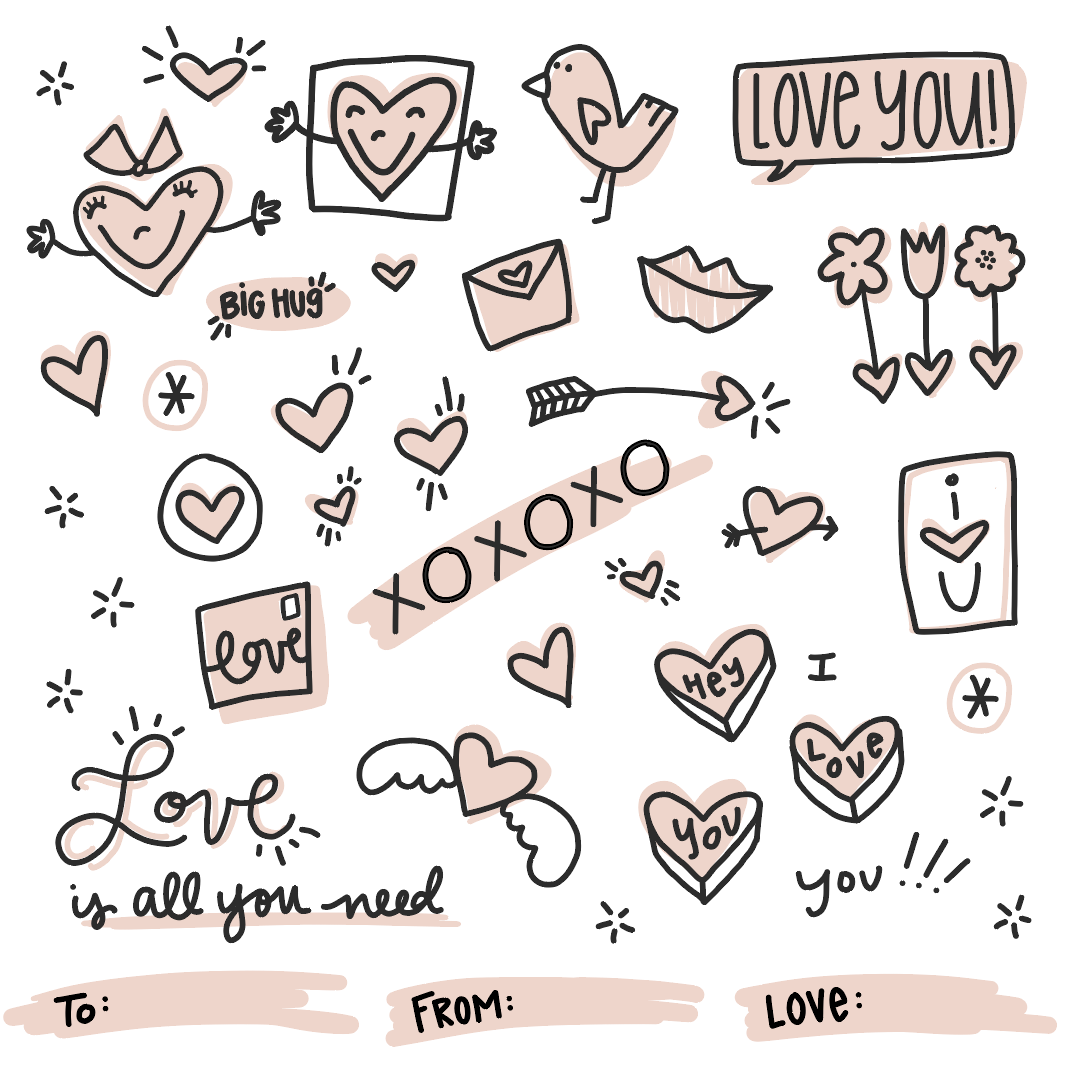 LOVE YOU!
BiG HUG
XOXOXO
i
U
love
Hey
I
Love
You
you!!!
Love
is all you need
To:
FROM:
LOVE: